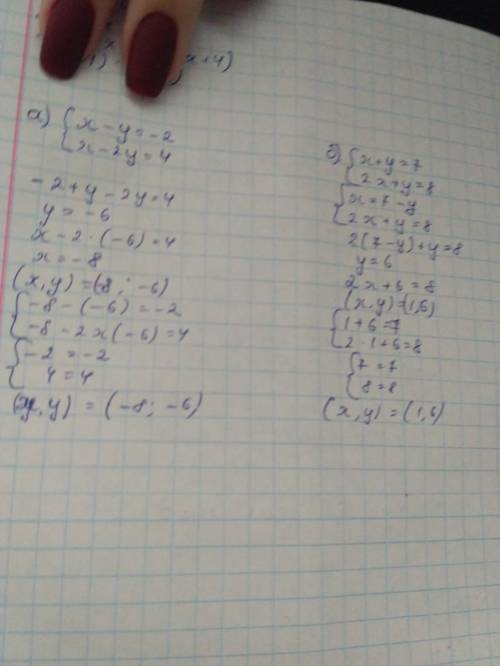 x+4)
а) { x - y = -2
x - 2y = 4
- 2 + y - 2y = 4
y = - 6
x - 2 · (-6) = 4
x = - 8
(x, y) = (-8 ; -6)
{ -8 - (-6) = -2
-8 - 2 x (-6) = 4
{ -2 = -2
4 = 4
(x, y) = (-8 ; -6)
б) { x + y = 7
2x + y = 8
{ x = 7 - y
2x + y = 8
2(7 - y) + y = 8
y = 6
2x + 6 = 8
(x, y) = (1, 6)
{ 1 + 6 = 7
2 · 1 + 6 = 8
{ 7 = 7
8 = 8
(x, y) = (1, 6)